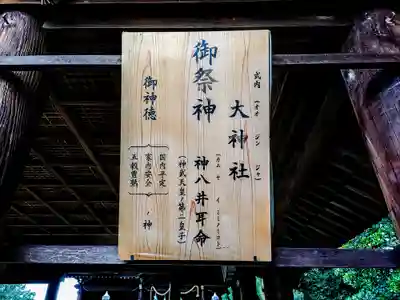 式内
大神社
(オオ ジン ジャ)
御祭神
神八井耳命
(カム ヤ イ ミミノミコト)
(神武天皇ノ第二皇子)
御神徳
国内平定
家内安全
五穀豊熟
ノ神